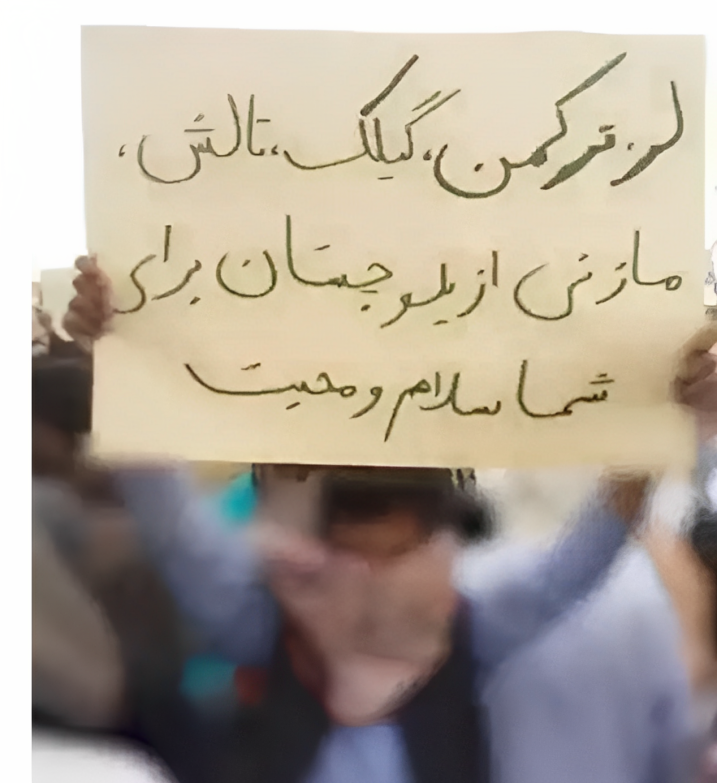 لر، ترکمن، گیلک، تالش،
مازنی از بلوچستان برای
شما سلام و محبت